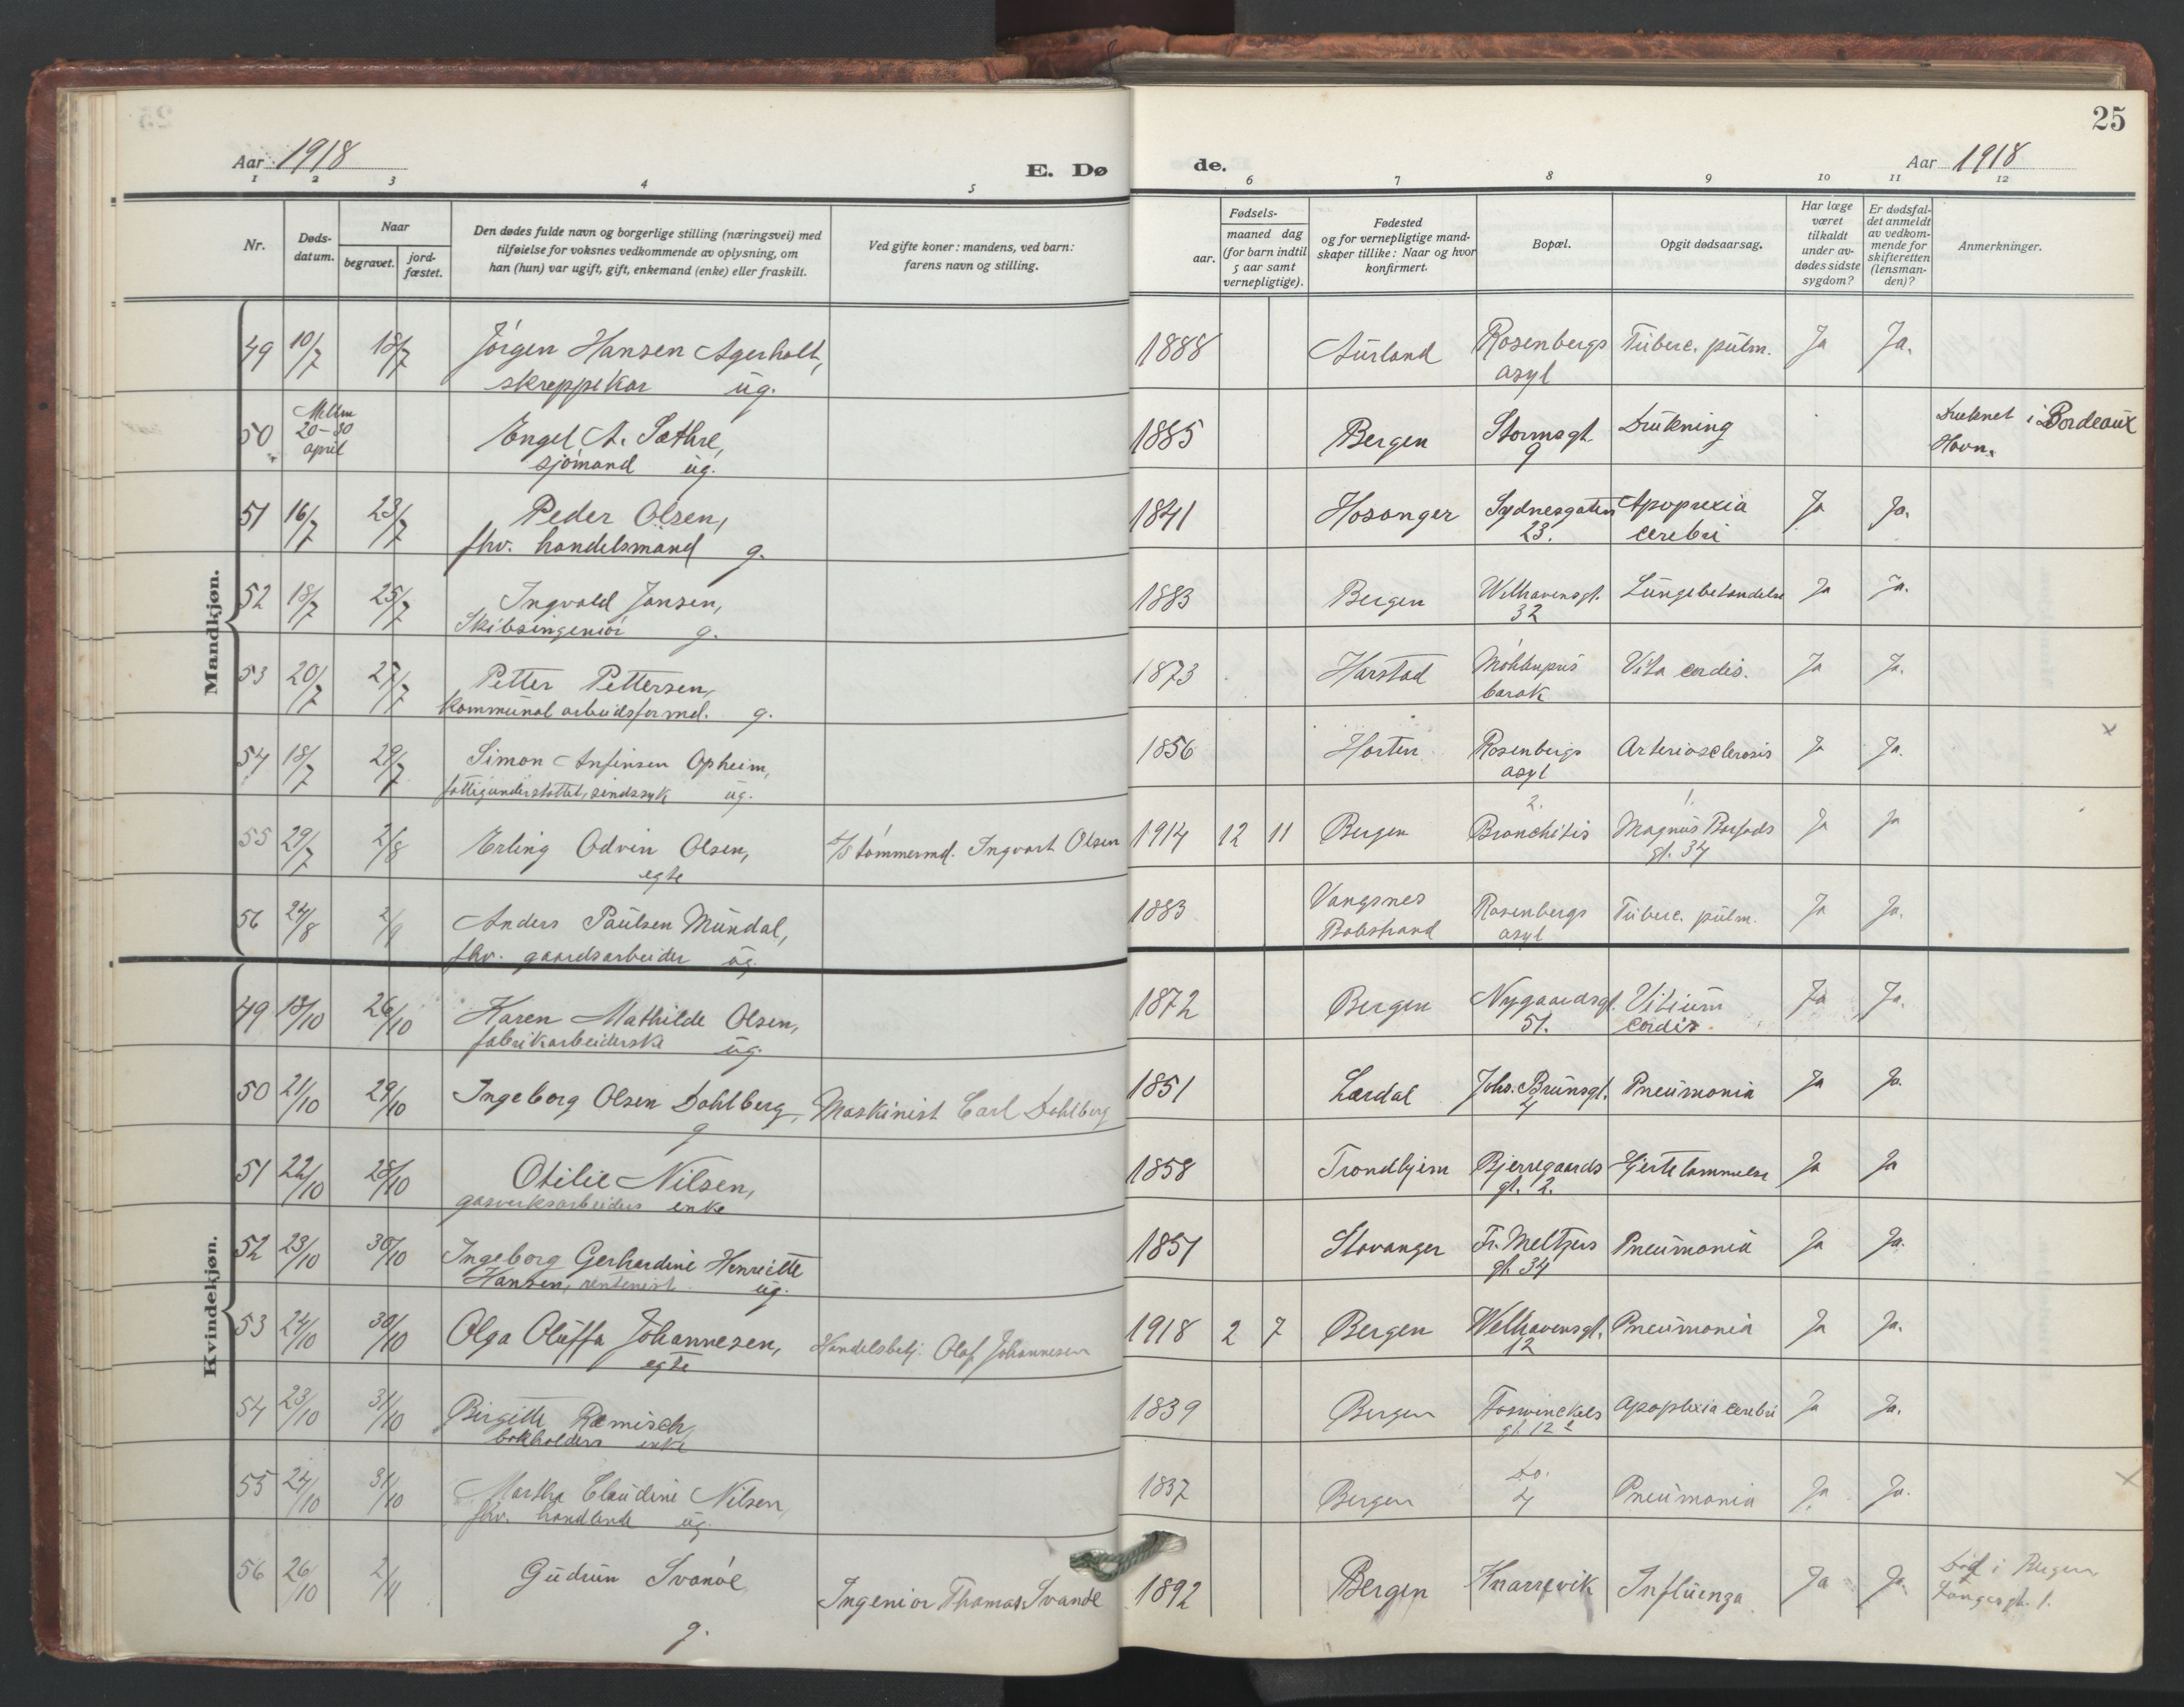 25
Aar 1918
E. Dø de.
Aar 1918
1 2 3 4 5 6 7 8 9 10 11 12
Nr.
Døds-
datum.
Naar
begravet.
jord-
fæstet.
Den dødes fulde navn og borgerlige stilling (næringsvei) med
tilføielse for voksnes vedkommende av oplysning, om
han (hun) var ugift, gift, enkemand (enke) eller fraskilt.
Ved gifte koner: mandens, ved barn:
farens navn og stilling.
Fødsels-
aar.
maaned dag
(for barn indtil
5 aar samt
vernepligtige).
Fødested
og for vernepligtige mand-
skaper tillike: Naar og hvor
konfirmert.
Bopæl.
Opgit dødsaarsag.
Har læge
været
tilkaldt
under av-
dødes sidste
sygdom?
Er dødsfal-
det anmeldt
av vedkom-
mende for
skifteretten
(lensman-
den)?
Anmerkninger.
Mandkjøn.
49 10/7 18/7 Jörgen Hansen Agerholt, 1888 Aurland Rosenbergs Tuberc. pulm. Ja Ja.
skreppekar ug. asyl
50 Mellm 20-30 april Engel A. Sæthre, 1885 Bergen Stormsgt. Drukning Druknet i Bordeaux
sjömand ug. 9 Havn.
51 16/7 23/7 Peder Olsen, 1841 Hosanger Sydnesgaten Apoprexia Ja Ja.
fhv. handelsmand g. 23. cerebri
52 18/7 25/7 Ingvald Jansen, 1883 Bergen Welhavensgt. Lungebetændelse Ja Ja.
Skibsingeniör g. 32
53 20/7 27/7 Petter Pettersen, 1873 Harstad Möhlenpris Vita cordis. Ja Ja.
kommunal arbeidsformd. g. barak
54 18/7 29/7 Simon Anfinsen Opheim, 1856 Horten Rosenbergs Arteriosclerosis Ja Ja. x
fattigunderstöttet, sindssyk ug. asyl
55 29/7 2/8 Erling Odvin Olsen, tömmermd. Ingvart Olsen 1914 12 11 Bergen 2. Bronchitis 1. Magnus Barfods Ja Ja
egte gt. 34
56 24/8 2/9 Anders Paulsen Mundal, 1883 Vangsnes Rosenbergs Tuberc. pulm. Ja Ja.
fhv. gaardsarbeider ug. Balestrand asyl
Kvindekjøn.
49 18/10 26/10 Karen Mathilde Olsen, 1872 Bergen Nygaardsgt. Vitium Ja Ja.
fabrikarbeiderske ug. 51. cordis
50 21/10 29/10 Ingeborg Olsen Dahlberg, Maskinist Carl Dahlberg 1851 Lærdal Johs. Brunsgt. Pneumonia Ja Ja.
g 4
51 22/10 28/10 Otilie Nilsen, 1858 Trondhjem Bjerregaards Hjertelammelse Ja Ja
gasverksarbeiders enke gt. 2.
52 23/10 30/10 Ingeborg Gerhardine Henriette 1851 Stavanger Fr. Meltzers Pneumonia Ja Ja.
Hansen, rentenist ug. gt 34
53 24/10 30/10 Olga Oluffa Johannesen, Handelsbetj. Olaf Johannesen 1918 2 7 Bergen Welhavensgt. Pneumonia Ja Ja.
egte 12
54 23/10 31/10 Birgitte Ræmisch, 1839 Bergen Foswinckels Apoplexia cerebri Ja Ja.
bokholders enke gt. 12
55 24/10 31/10 Martha Claudine Nilsen, 1837 Bergen Do. Pneumonia Ja Ja. x
fhv. handlende ug. 4
56 26/10 2/11 Gudrun Svanöe, Ingeniör Thomas Svanöe 1892 Bergen Knarrevik Influenza Ja Ja. Död i Bergen
g.